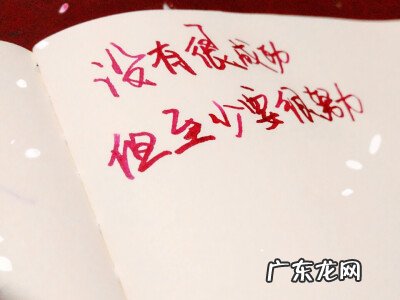 没有很成功
但至少要很努力
广东龙网